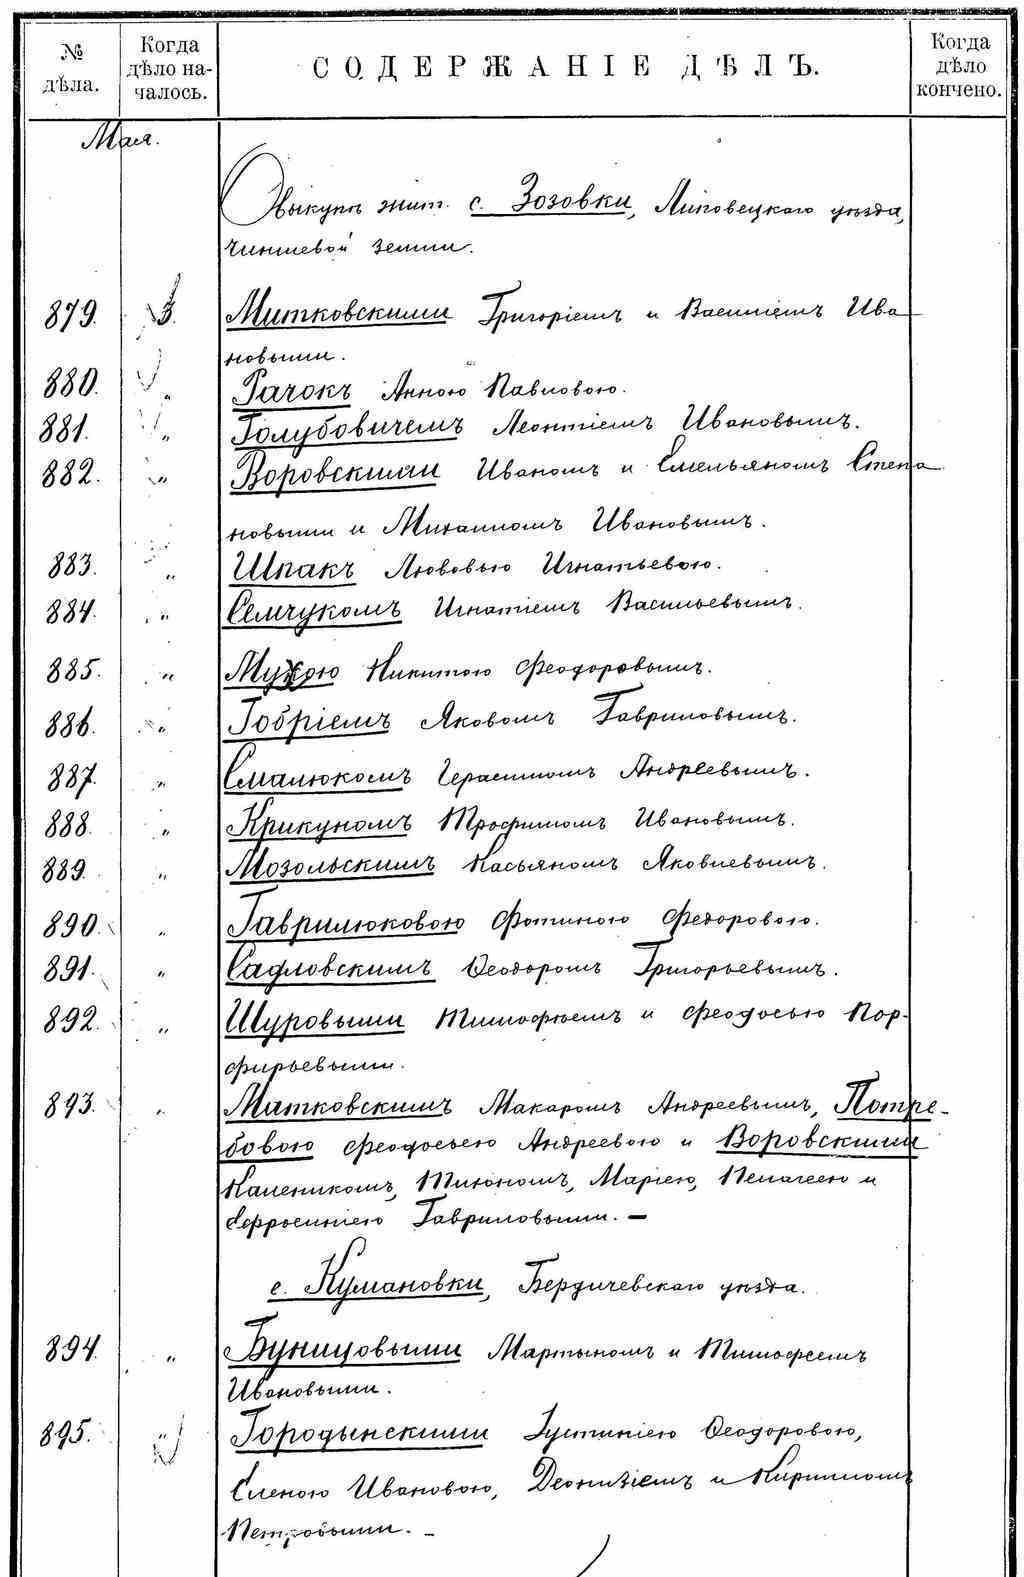 № дѣла.
Когда дѣло началось.
СОДЕРЖАНІЕ ДѢЛЪ.
Когда дѣло кончено.
Мая.
О выкупѣ жит. с. Зозовки, Липовецкаго уѣзда,
чиншевой земли.
879. 3. Митковскими Григоріемъ и Василіемъ Ива
новыми.
880. „ Рачокъ Анною Павловою.
881. „ Голубовичемъ Леонтіемъ Ивановымъ.
882. „ Воровскими Иваномъ и Емельяномъ Степа
новыми и Михаиломъ Ивановымъ.
883. „ Шпакъ Любовью Игнатьевою.
884. „ Семчукомъ Игнатіемъ Васильевымъ.
885. „ Мухою Никитою Феодоровымъ.
886. „ Гобріемъ Яковомъ Гавриловымъ.
887. „ Смалюкомъ Герасимомъ Андреевымъ.
888. „ Крикуномъ Трофимомъ Ивановымъ.
889. „ Мозольскимъ Касьяномъ Яковлевымъ.
890. „ Гаврилюковою Фотиною Федоровою.
891. „ Садловскимъ Ѳеодоромъ Григорьевымъ.
892. „ Щуровыми Тимофѣемъ и Феодосью Пор-
фирьевыми.
893. „ Матковскимъ Макаромъ Андреевымъ, Потре-
бовою Феодосьею Андреевою и Воровскими
Калеником​ъ, Тихономъ, Маріею, Пелагеею и
Ефросиніею Гавриловыми. —
с. Кумановки, Бердичевскаго уѣзда.
894. „ Буницовыми Мартыномъ и Тимофеемъ
Ивановыми.
895. „ Городынскими Іустиніею Ѳеодоровою,
Еленою Ивановою, Деонизіемъ и Кириломъ
Петровыми. —